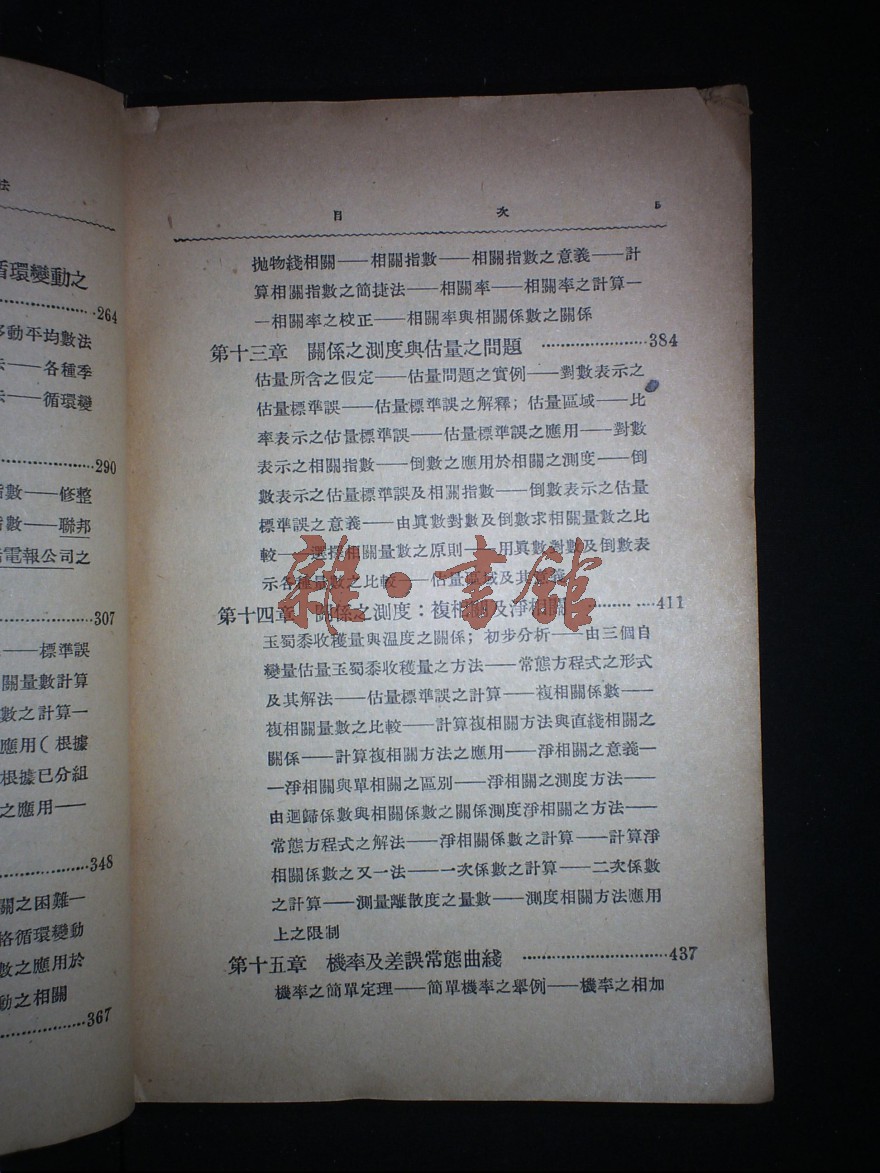 法
循環變動之
264
移動平均數法
——各種季
——循環變
290
指數——修整
指數——聯邦
電報公司之
307
——標準誤
關量數計算
數之計算—
應用(根據
根據已分組
之應用——
348
關之困難—
格循環變動
數之應用於
動之相關
367
目 次 5
拋物綫相關——相關指數——相關指數之意義——計
算相關指數之簡捷法——相關率——相關率之計算—
—相關率之校正——相關率與相關係數之關係
第十三章 關係之測度與估量之問題 ……………384
估量所含之假定——估量問題之實例——對數表示之
估量標準誤——估量標準誤之解釋；估量區域——比
率表示之估量標準誤——估量標準誤之應用——對數
表示之相關指數——倒數之應用於相關之測度——倒
數表示之估量標準誤及相關指數——倒數表示之估量
標準誤之意義——由眞數對數及倒數求相關量數之比
較——選擇相關量數之原則——用眞數對數及倒數表
示各種量數之比較——估量區域及其意義
雜·書館
第十四章 關係之測度：複相關及淨相關 …………411
玉蜀黍收穫量與温度之關係；初步分析——由三個自
變量估量玉蜀黍收穫量之方法——常態方程式之形式
及其解法——估量標準誤之計算——複相關係數——
複相關量數之比較——計算複相關方法與直綫相關之
關係——計算複相關方法之應用——淨相關之意義—
—淨相關與單相關之區别——淨相關之測度方法——
由迴歸係數與相關係數之關係測度淨相關之方法——
常態方程式之解法——淨相關係數之計算——計算淨
相關係數之又一法——一次係數之計算——二次係數
之計算——測量離散度之量數——測度相關方法應用
上之限制
第十五章 機率及差誤常態曲綫 ……………………437
機率之簡單定理——簡單機率之舉例——機率之相加